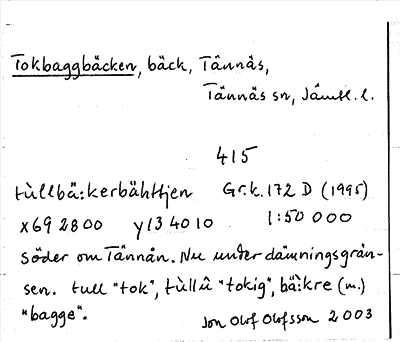 Tokbaggbäcken, bäck, Tännäs,
Tännäs sn, Jämtl. l.
415
tùllbä:kerbähttjen Gr.k. 172 D (1995)
x69 28 00 y13 40 10 1:50 000
Söder om Tännån. Nu under dämningsgrän-
sen. tull "tok", tùllû "tokig", bä:kre (m.)
"bagge".
Jon Olof Olofsson 2003